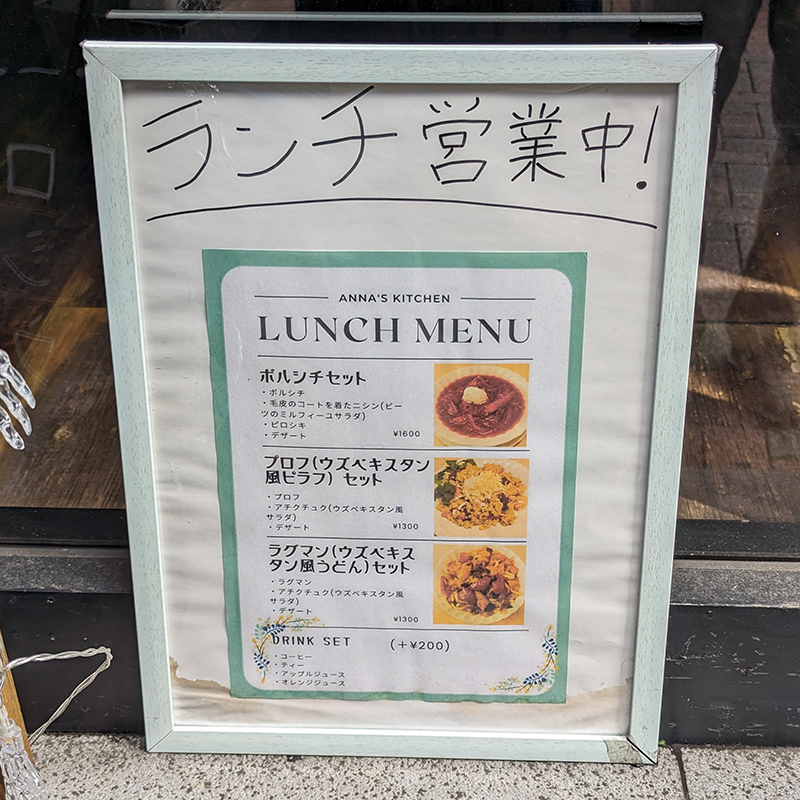 ランチ営業中!
ANNA'S KITCHEN
LUNCH MENU
ボルシチセット
・ボルシチ
・毛皮のコートを着たニシン(ビー
ツのミルフィーユサラダ)
・ピロシキ
・デザート ¥1600
プロフ(ウズベキスタン
風ピラフ) セット
・プロフ
・アチクチュク(ウズベキスタン風
サラダ)
・デザート ¥1300
ラグマン(ウズベキス
タン風うどん)セット
・ラグマン
・アチクチュク(ウズベキスタン風
サラダ)
・デザート ¥1300
DRINK SET (+¥200)
・コーヒー
・ティー
・アップルジュース
・オレンジジュース